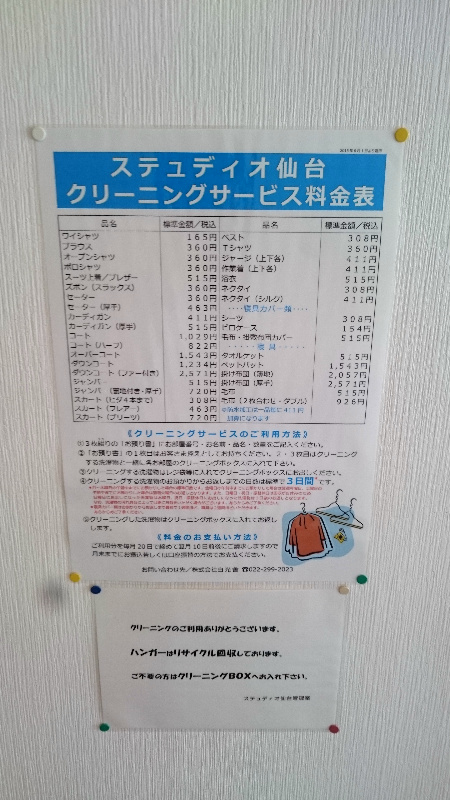 ステュディオ仙台
クリーニングサービス料金表
品名 標準金額／税込 品名 標準金額／税込
ワイシャツ 165円 ベスト 308円
ブラウス 360円 Tシャツ 360円
オープンシャツ 360円 ジャージ（上下各） 411円
ポロシャツ 360円 作業着（上下各） 411円
スーツ上着／ブレザー 515円 浴衣 515円
ズボン（スラックス） 360円 ネクタイ 308円
セーター 360円 ネクタイ（シルク） 411円
セーター（厚手） 463円 ‥‥寝具カバー類‥‥
カーディガン 411円 シーツ 308円
カーディガン（厚手） 515円 ピロケース 154円
コート 1,029円 毛布・掛敷布団カバー
コート（ハーフ） 822円 ‥‥‥寝 具‥‥‥
オーバーコート 1,543円 タオルケット 515円
ダウンコート 1,234円 ベットパット 1,543円
ダウンコート（ファー付き） 2,571円 掛け布団（薄地） 2,057円
ジャンパー 515円 掛け布団（厚手） 2,571円
ジャンパー（裏地付き・厚手） 720円 毛布 515円
スカート（ヒダ4本まで） 308円 毛布（2枚合わせ・ダブル） 926円
スカート（フレアー） 463円 ※防水加工は一品毎に411円
スカート（プリーツ） 720円 加算になります
《クリーニングサービスのご利用方法》
①3枚綴りの「お預り書」にお部屋番号・お名前・品名・数量をご記入ください。
②「お預り書」の1枚目はお客さま控えとしてお持ちください。2・3枚目はクリーニング
する洗濯物と一緒に各お部屋のクリーニングボックスに入れて下さい。
③クリーニングする洗濯物はレジ袋等に入れてクリーニングボックスにお出しください。
④クリーニングする洗濯物のお預かりからお返しまでの日数は標準で3日間です。
⑤クリーニングした洗濯物はクリーニングボックスに入れてお返し
します。
《料金のお支払い方法》
ご利用分を毎月20日で締めて翌月10日前後にご請求しますので
月末までにお振込若しくは口座振替の方法でお支払ください。
お問い合わせ先／株式会社 ☎022-299-2023
クリーニングのご利用ありがとうございます。
ハンガーはリサイクル回収しております。
ご不要の方はクリーニングBOXへお入れ下さい。
ステュディオ仙台管理室